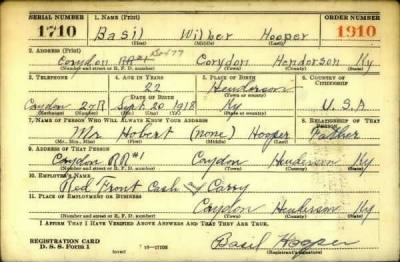 SERIAL NUMBER 1. NAME (Print) ORDER NUMBER
1710 Basil Wilber Hooper 1910
(First) (Middle) (Last)
2. ADDRESS (Print)
Corydon Box 77 Corydon Henderson Ky
(Number and street or R. F. D. number) (Town) (County) (State)
3. TELEPHONE 4. AGE IN YEARS 5. PLACE OF BIRTH 6. COUNTRY OF CITIZENSHIP
22 Henderson
DATE OF BIRTH (Town or county)
Corydon 27R Sept. 20 1918 Ky U.S.A
(Exchange) (Number) (Mo.) (Day) (Yr.) (State or country)
7. NAME OF PERSON WHO WILL ALWAYS KNOW YOUR ADDRESS 8. RELATIONSHIP OF THAT PERSON
Mr. Hobert (none) Hooper Father
(Mr., Mrs., Miss) (First) (Middle) (Last)
9. ADDRESS OF THAT PERSON
Corydon RR#1 Corydon Henderson Ky
(Number and street or R. F. D. number) (Town) (County) (State)
10. EMPLOYER'S NAME
Red Front Cash and Carry
11. PLACE OF EMPLOYMENT OR BUSINESS
Corydon Henderson Ky
(Number and street or R. F. D. number) (Town) (County) (State)
I AFFIRM THAT I HAVE VERIFIED ABOVE ANSWERS AND THAT THEY ARE TRUE.
REGISTRATION CARD
D. S. S. Form 1 Basil Hooper
(over) (Registrant's signature)